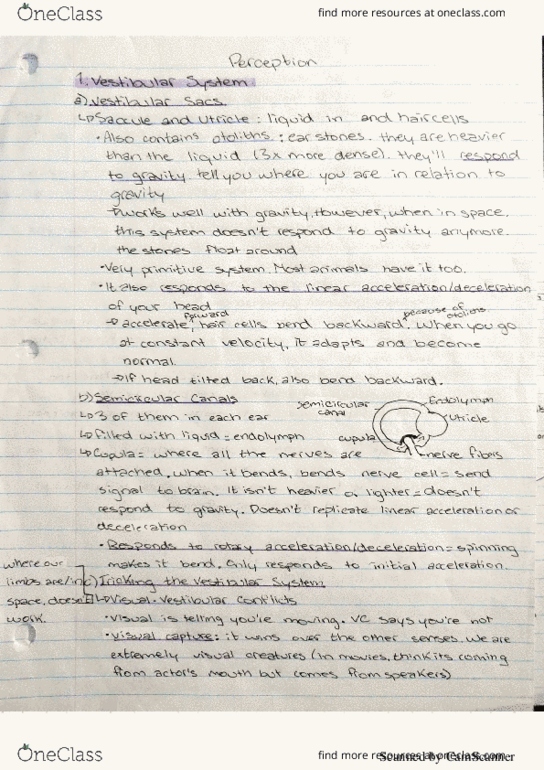 OneClass
find more resources at oneclass.com
Perception
1. Vestibular System
a) Vestibular Sacs
↳ Saccule and Utricle : liquid in and haircells
• Also contains otoliths : ear stones. they are heavier
than the liquid (3x more dense). they'll respond
to gravity tell you where you are in relation to
gravity
→ works well with gravity. However, when in space,
this system doesn't respond to gravity anymore.
the stones float around
• Very primitive system. Most animals have it too.
• It also responds to the linear acceleration/deceleration
of your head
forward
because of otoliths.
→ accelerate, hair cells bend backward. When you go
at constant velocity, it adapts and become
normal.
→ If head tilted back, also bend backward.
b) Semicircular Canals
↳ 3 of them in each ear
↳ filled with liquid = endolymph
semicircular canal
Endolymph
Utricle
cupula
nerve fibris
↳ Cupula = where all the nerves are
attached. when it bends, bends nerve cell = send
signal to brain. It isn't heavier or lighter = doesn't
respond to gravity. Doesn't replicate linear acceleration or
deceleration
• Responds to rotary acceleration/deceleration = spinning
makes it bend. Only responds to initial acceleration.
where our
limbs are/in
space, doesn't
work.
c) Tricking the Vestibular System
↳ Visual-Vestibular Conflicts
• Visual is telling you're moving. VC says you're not
• Visual capture : it wins over the other senses. We are
extremely visual creatures (in movies, think its coming
from actor's mouth but comes from speakers)
OneClass
find more resources at oneclass.com
Scanned by CamScanner